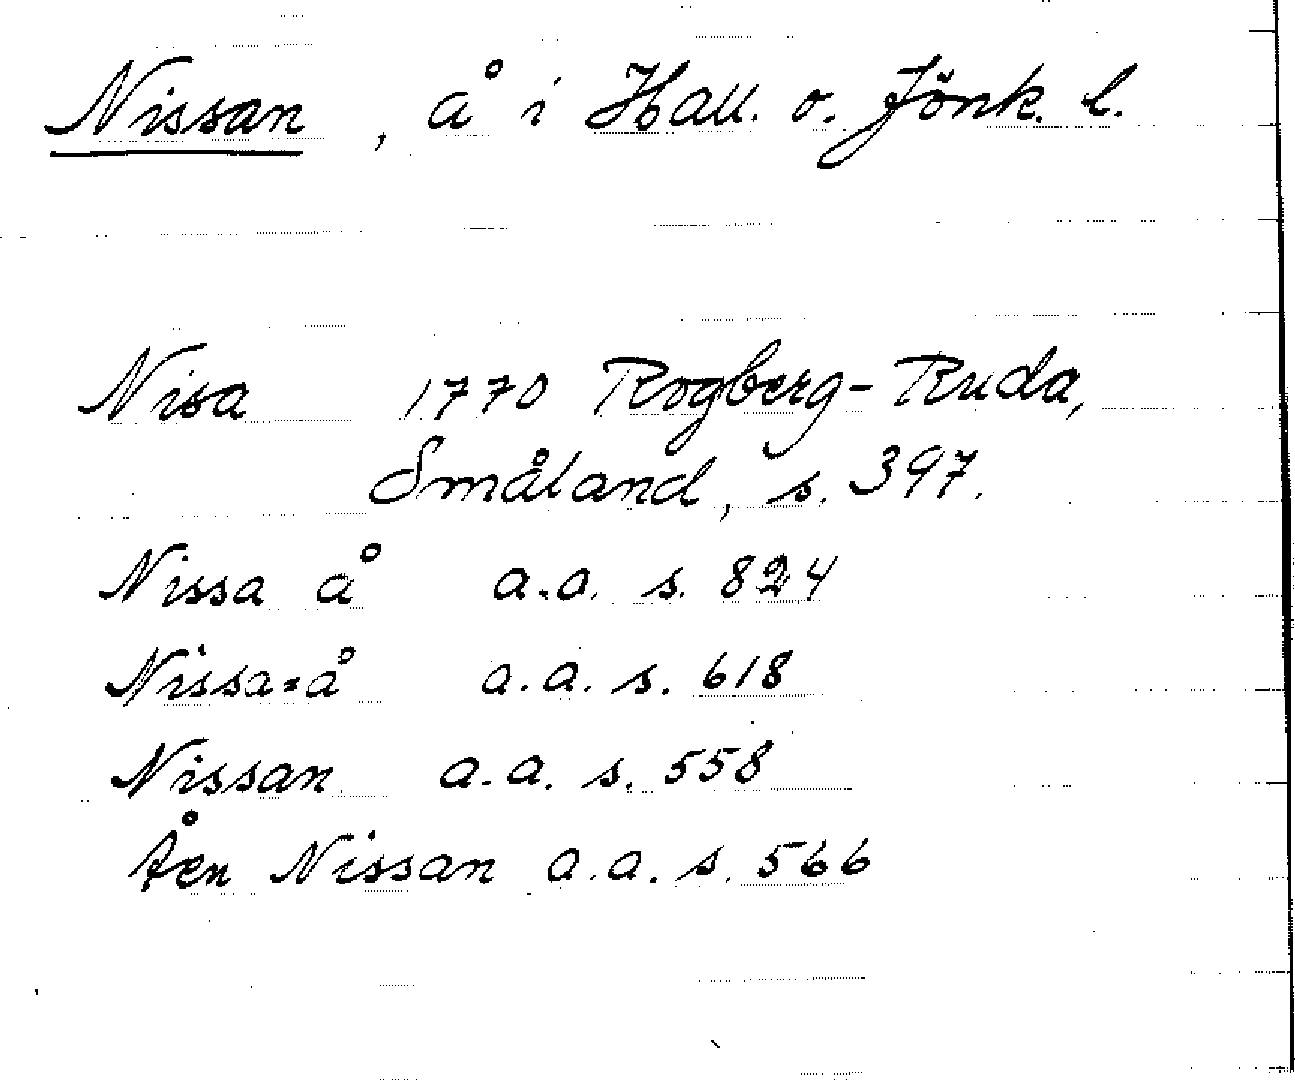 Nissan, å i Hall. o. Jönk. l.
Nisa 1770 Rogberg-Ruda,
Småland, s. 397.
Nissa å a.a. s. 824
Nissa=å a.a. s. 618
Nissan a.a. s. 558
Åen Nissan a.a. s. 566